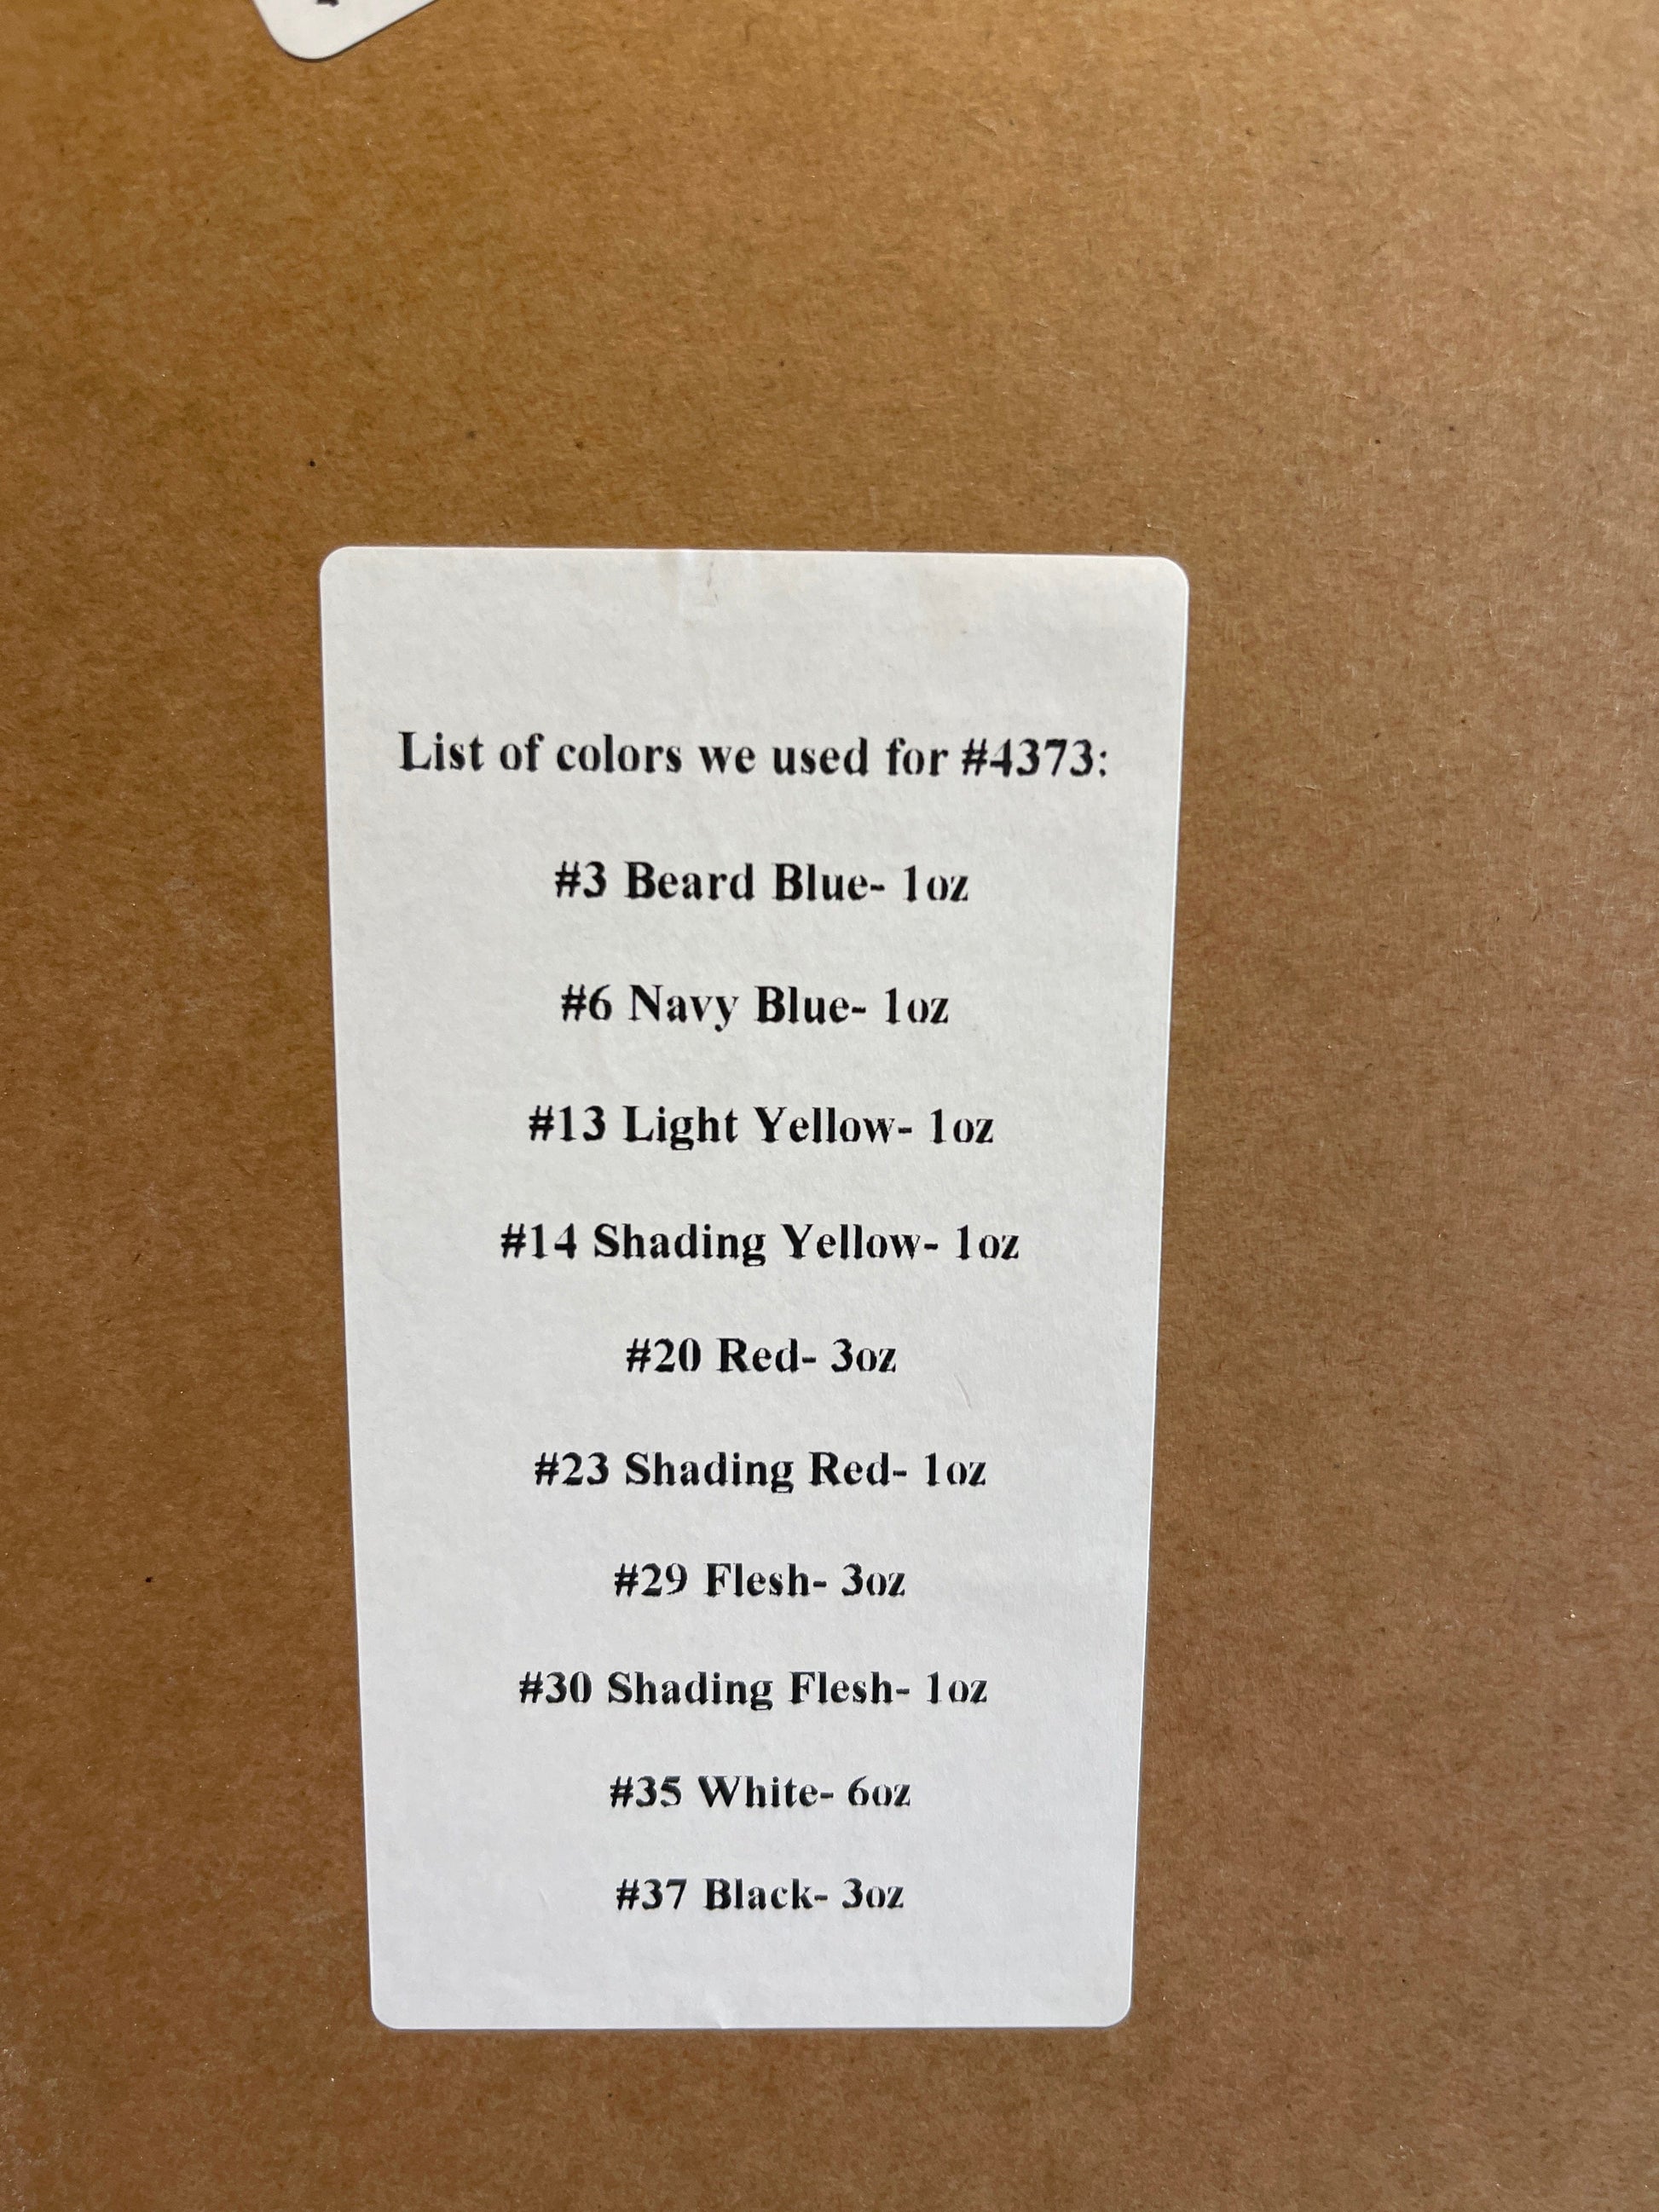 List of colors we used for #4373:
#3 Beard Blue- 1oz
#6 Navy Blue- 1oz
#13 Light Yellow- 1oz
#14 Shading Yellow- 1oz
#20 Red- 3oz
#23 Shading Red- 1oz
#29 Flesh- 3oz
#30 Shading Flesh- 1oz
#35 White- 6oz
#37 Black- 3oz